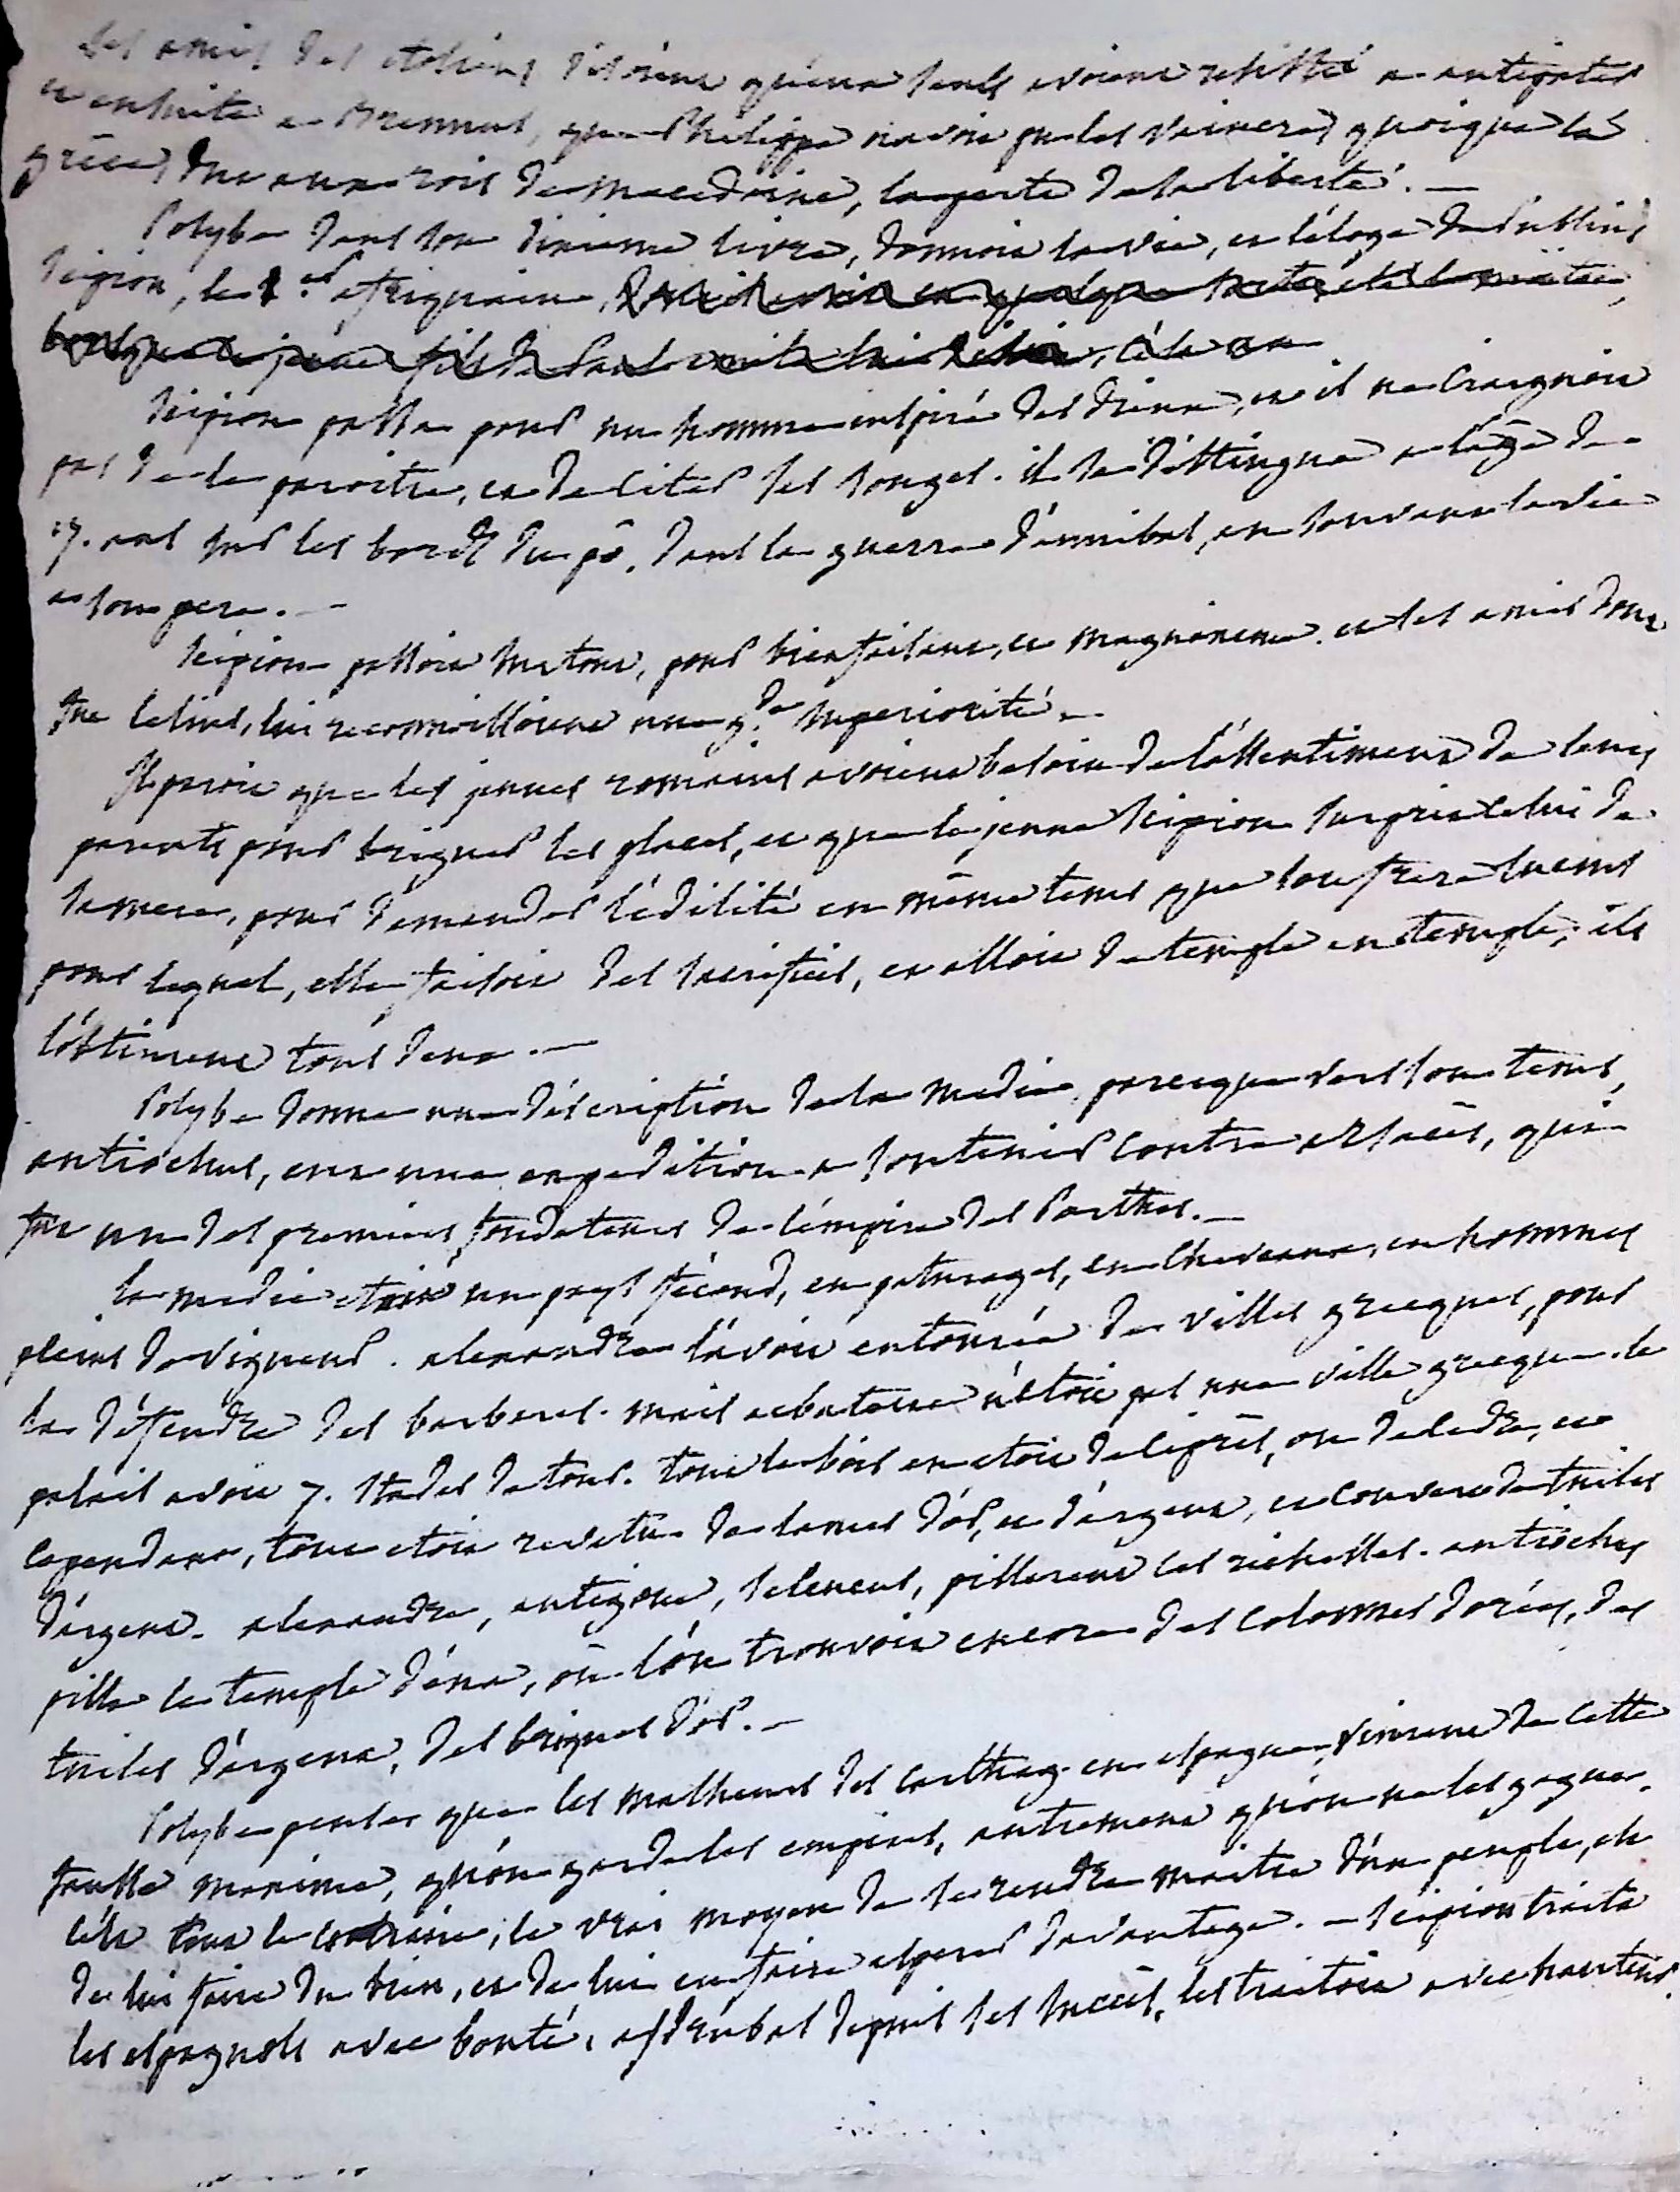 les amis des etoliens disoient qu'eux seuls avoient resisté a antipater
et ensuite a Brennus, que Philippe n'avoit pu les vaincre, quoique la
grece, dut aux rois de macedoine, la perte de la liberté. —
Polybe dans son dixieme livre, donnoit la vie, et l'éloge de Publius
scipion, le 1.er affriquain,
scipion passa pour un homme inspiré des dieux, et il ne craignoit
pas de le paroitre, et de citer ses songes. il se distingua a l'âge de
17. ans sur les bords du pô, dans la guerre d'annibal, en sauvant la vie
a son pere. —
scipion passoit surtout, pour bienfaisant, et magnanime. et ses amis dont
fut lelius, lui reconnoissoient une g.de superiorité. —
Il paroit que les jeunes romains avoient besoin de l'assentiment de leurs
parents pour briguer les places, et que le jeune scipion surprit celui de
sa mere, pour demander l'édilité en même tems que son frere lucius
pour lequel, elle faisoit des sacrifices, et alloit de temple en temple; ils
l'obtinrent tous deux. —
Polybe donne une déscription de la medie, parceque vers son tems,
antiochus, eut une expedition a soutenir contre arsaces, qui
fut un des premiers fondateurs de l'émpire des Parthes. —
la medie etoit un pays fécond, en paturages, en chevaux, en hommes
pleins de vigueur. alexandre l'avoit entourée de villes grecques, pour
la défendre des barbares. mais ecbatane n'étoit pas une ville grecque. le
palais avoit 7. stades de tour. tout le bois en etoit de ciprès, ou de cedre, et
cependant, tout etoit revetu de lames d'or, et d'argent, et couvert de tuiles
d'argent. alexandre, antigone, seleucus, pillerent ces richesses. antiochus
pilla le temple d'éna, où l'on trouvoit encore des colonnes dorées, des
tuiles d'argent, des briques d'or. —
Polybe pense que les malheurs des carthag. en espagne, vinrent de cette
fausse maxime, qu'on garde les empires, autrement qu'on ne les gagne.
c'est tout le contraire, le vrai moyen de se rendre maitre d'un peuple, est
de lui faire du bien, et de lui en faire esperer davantage. — scipion traita
les espagnols avec bonté, asdrubal depuis ses succès, les traitoit avec hauteur.